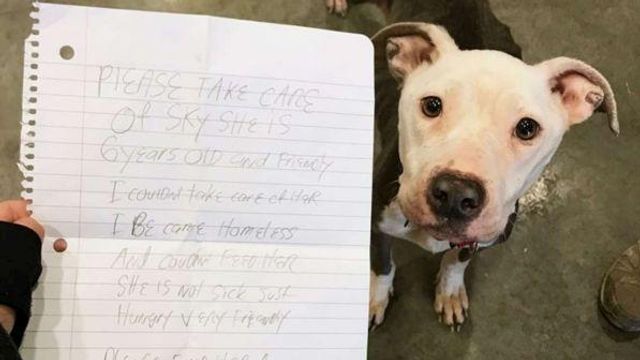 PlEASE TAKE CARE
Of SKY SHE IS
6 years OlD and Friendly
I couldnt take care of Her
I BE came Homeless
And couldnt FEED HER
SHE IS NOT SICK JUST
Hungry Very Friendly
Please